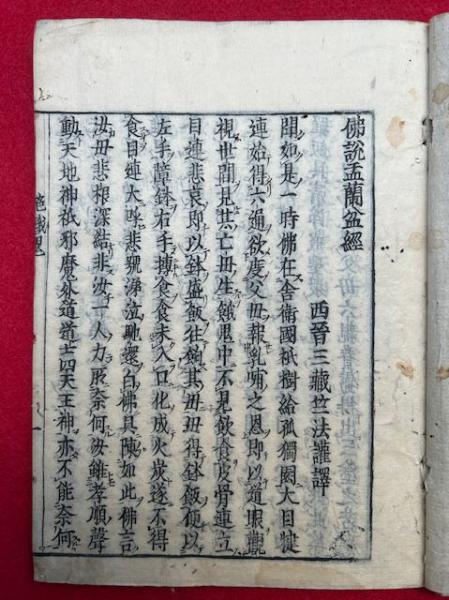 佛說盂蘭盆經
西晉三藏竺法護譯
聞如是一時佛在舍衛國祇樹給孤獨園大目犍
連始得六通欲度父母報乳哺之恩即以道眼觀
視世間見其亡母生餓鬼中不見飲食皮骨連立
目連悲哀即以鉢盛飯往餉其母母得鉢飯便以
左手障鉢右手摶食食未入口化成火炭遂不得
食目連大呼悲號涕泣馳還白佛具陳如此佛言
汝母罪根深結非汝一人力所奈何汝雖孝順聲
動天地神祇邪魔外道道士四天王神亦不能奈何